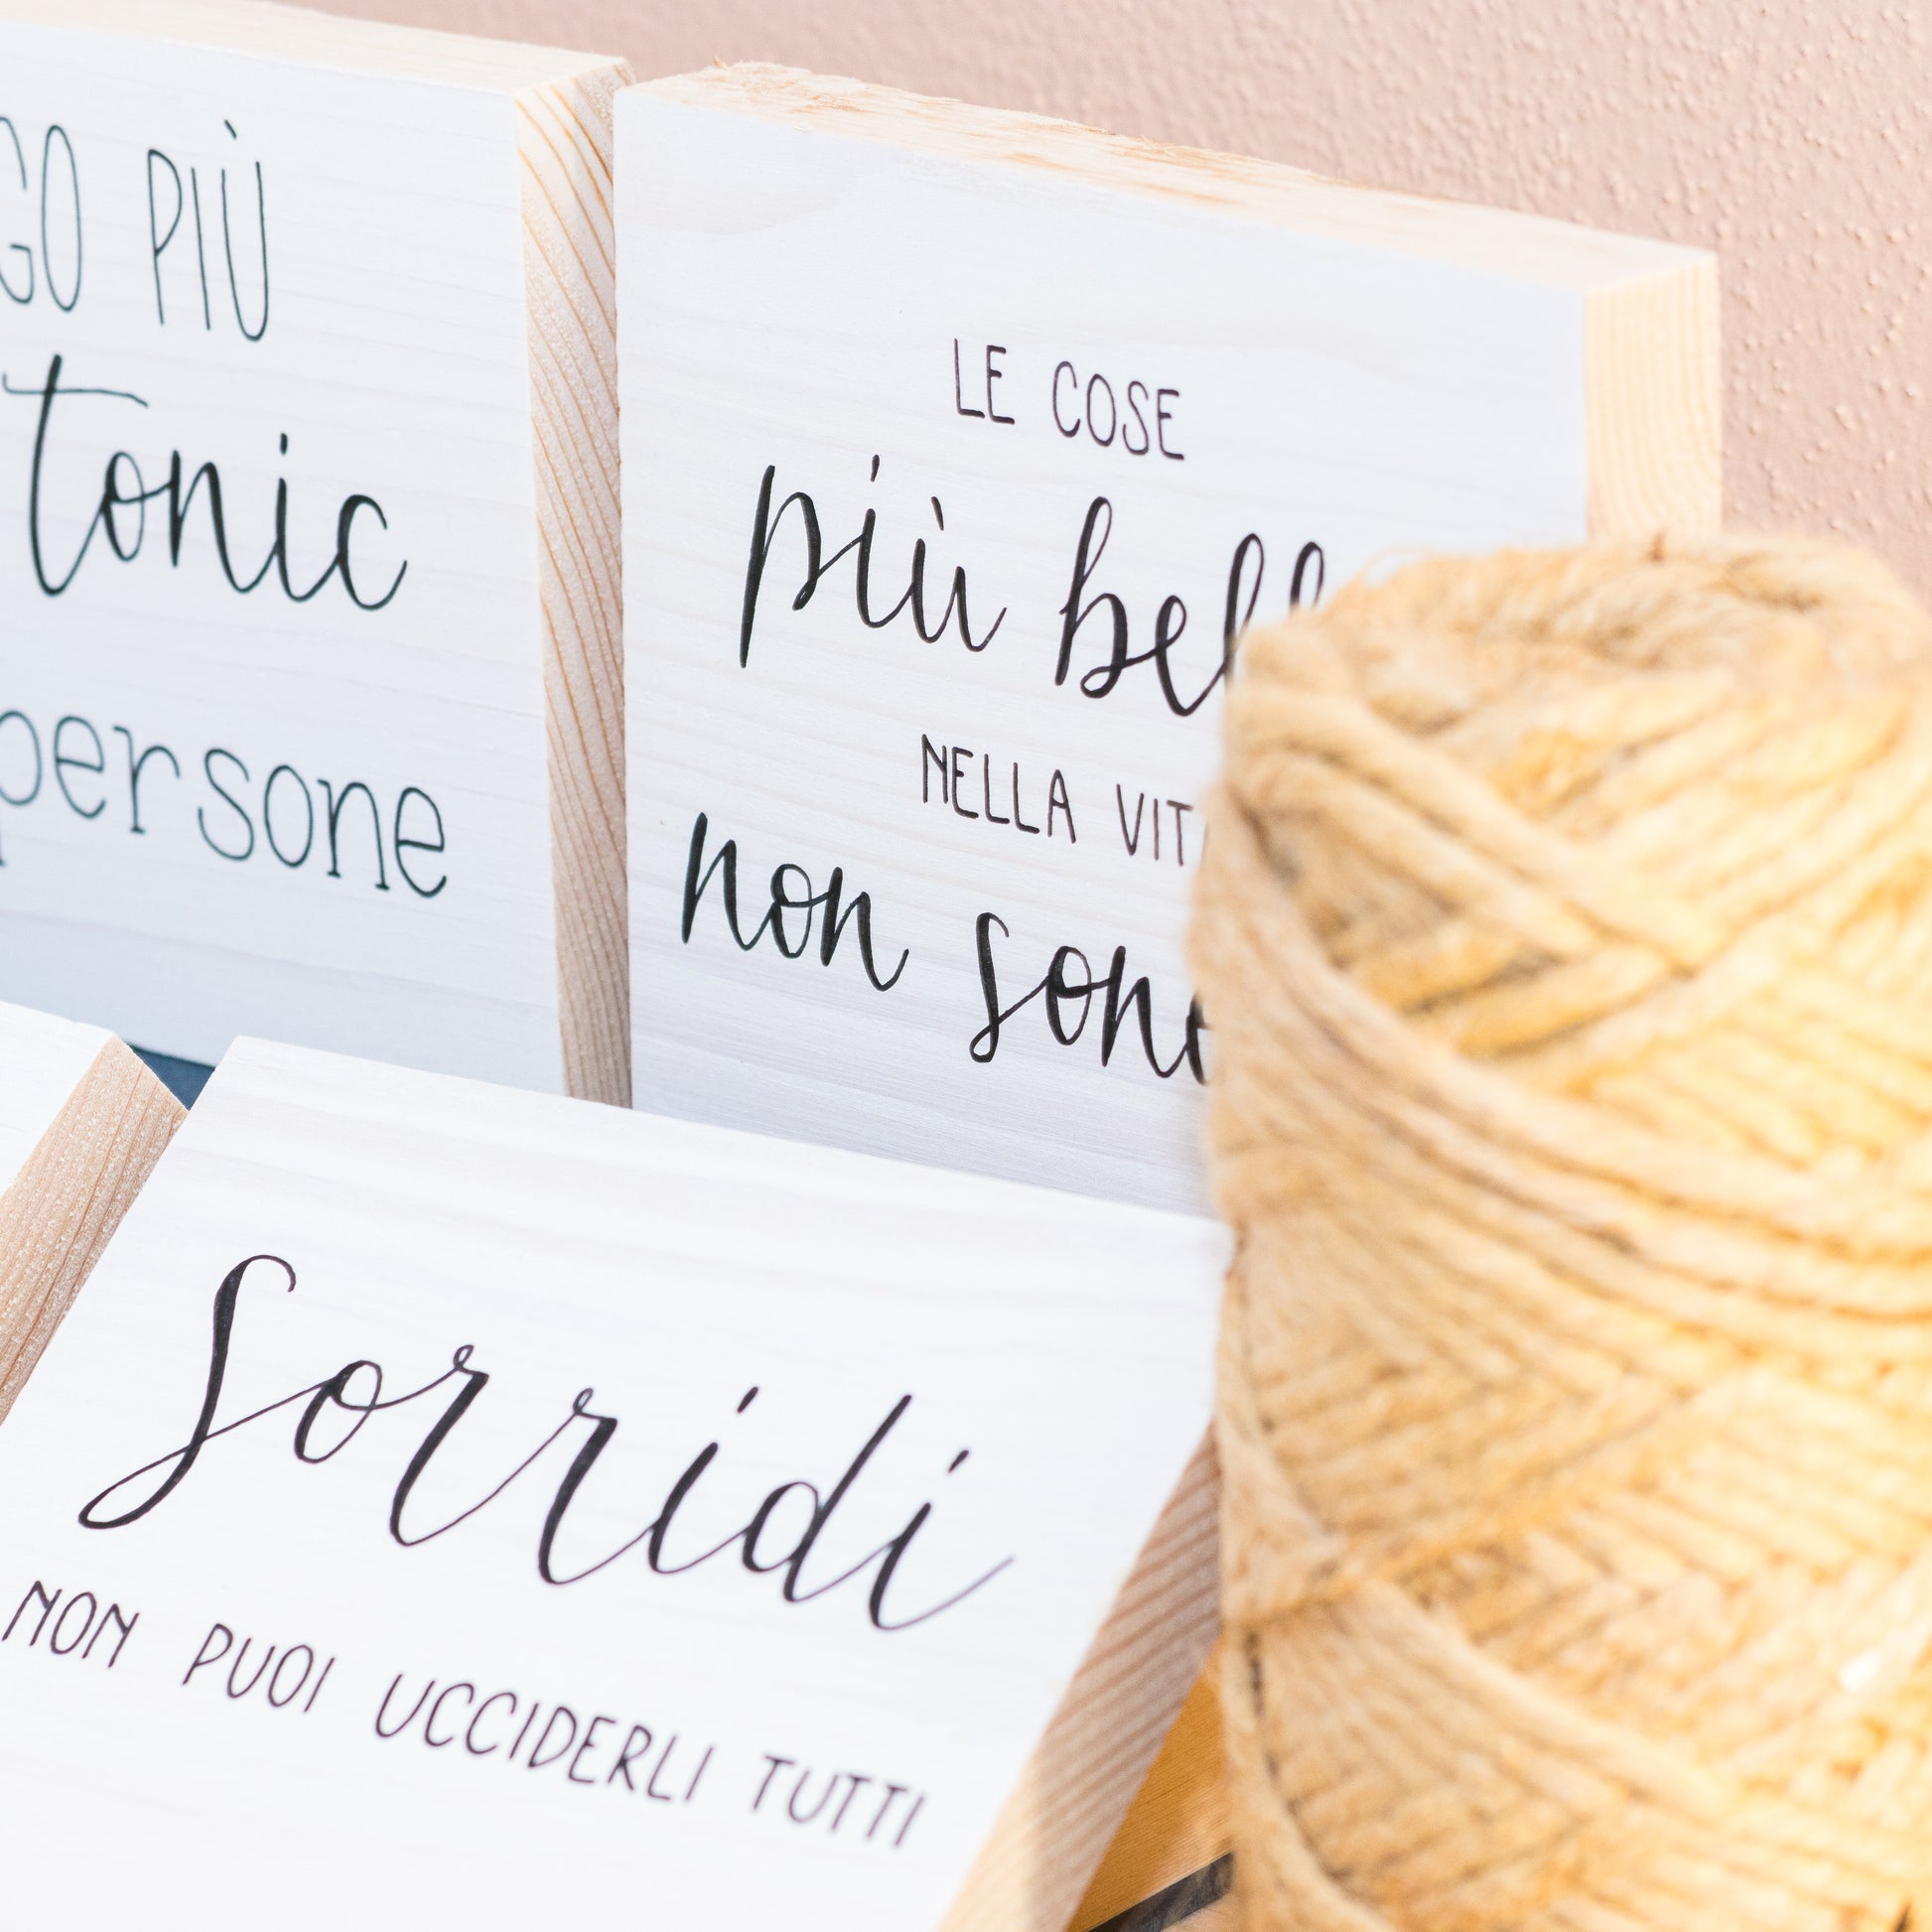 GO PIÙ
tonic
persone
LE COSE
più bell
NELLA VIT
non sono
Sorridi
NON PUOI UCCIDERLI TUTTI